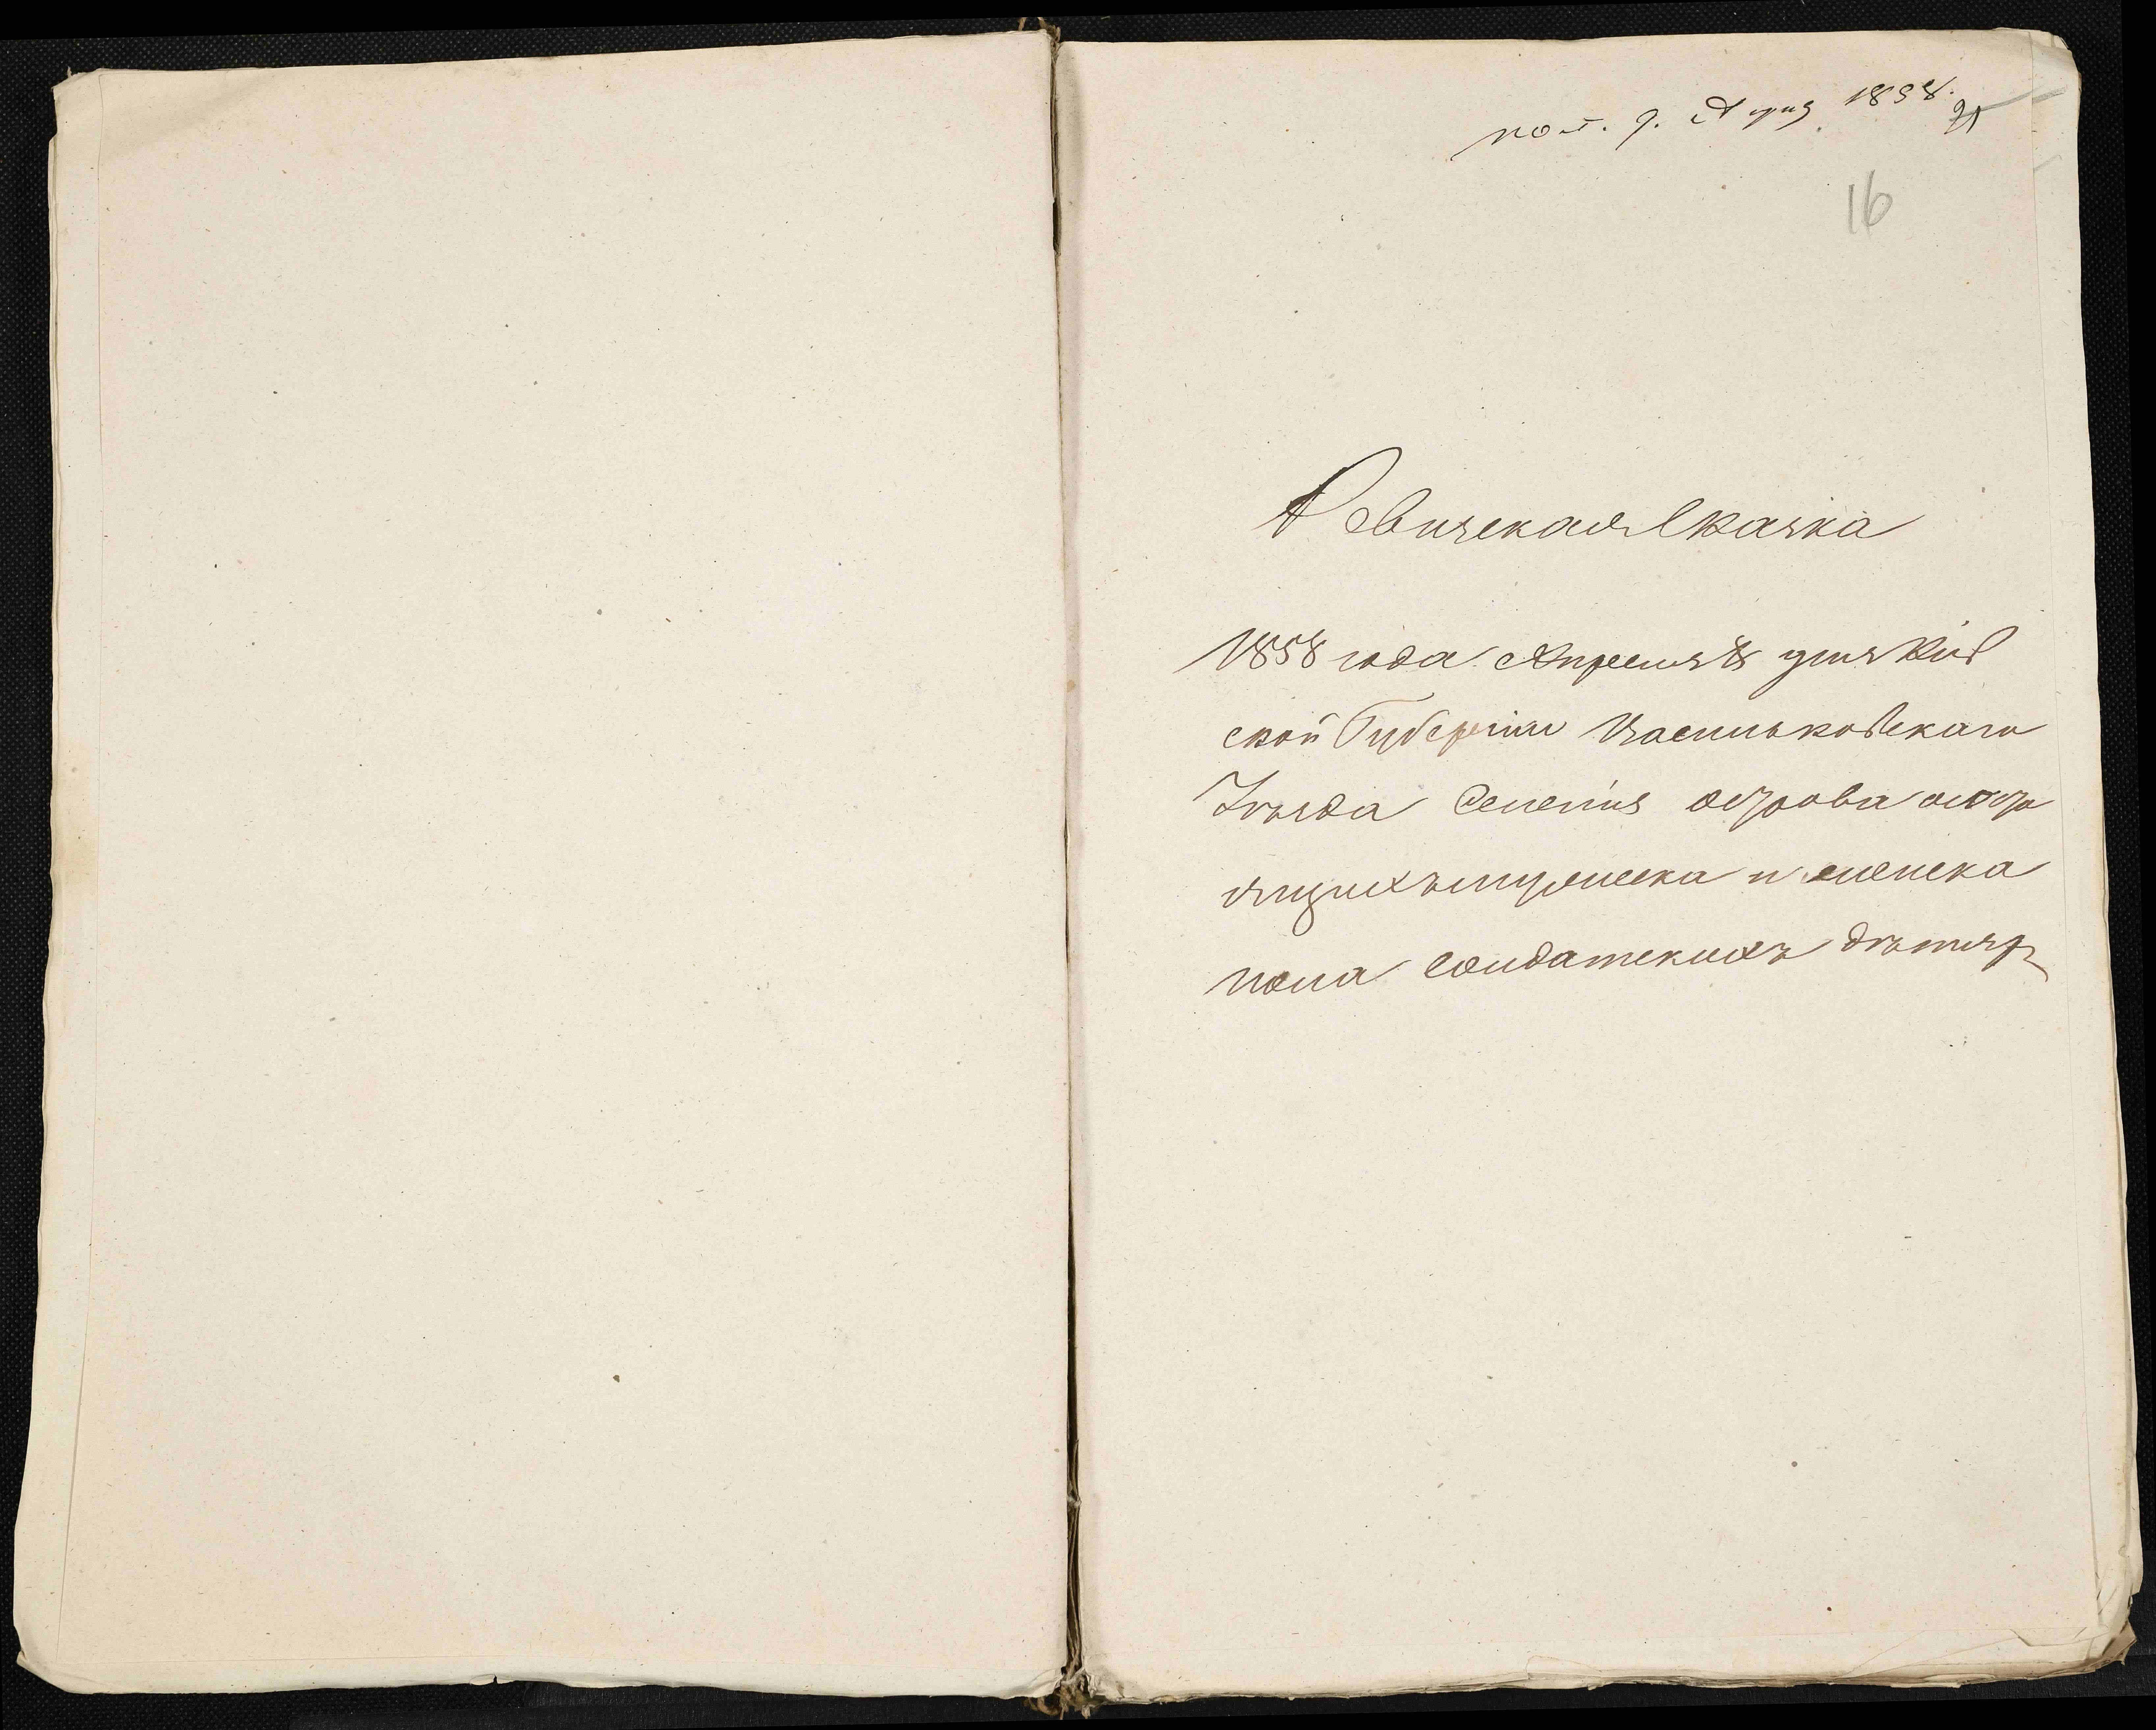 пол. 9. Апрѣ 1858.
16
Ревизская Сказка
1858 года Апреля 8 дня Кіев
ской Губерніи Васильковскаго
Уѣзда Селенія острова состо
ящихъ мужеска и женска
пола Солдатскихъ дѣтях